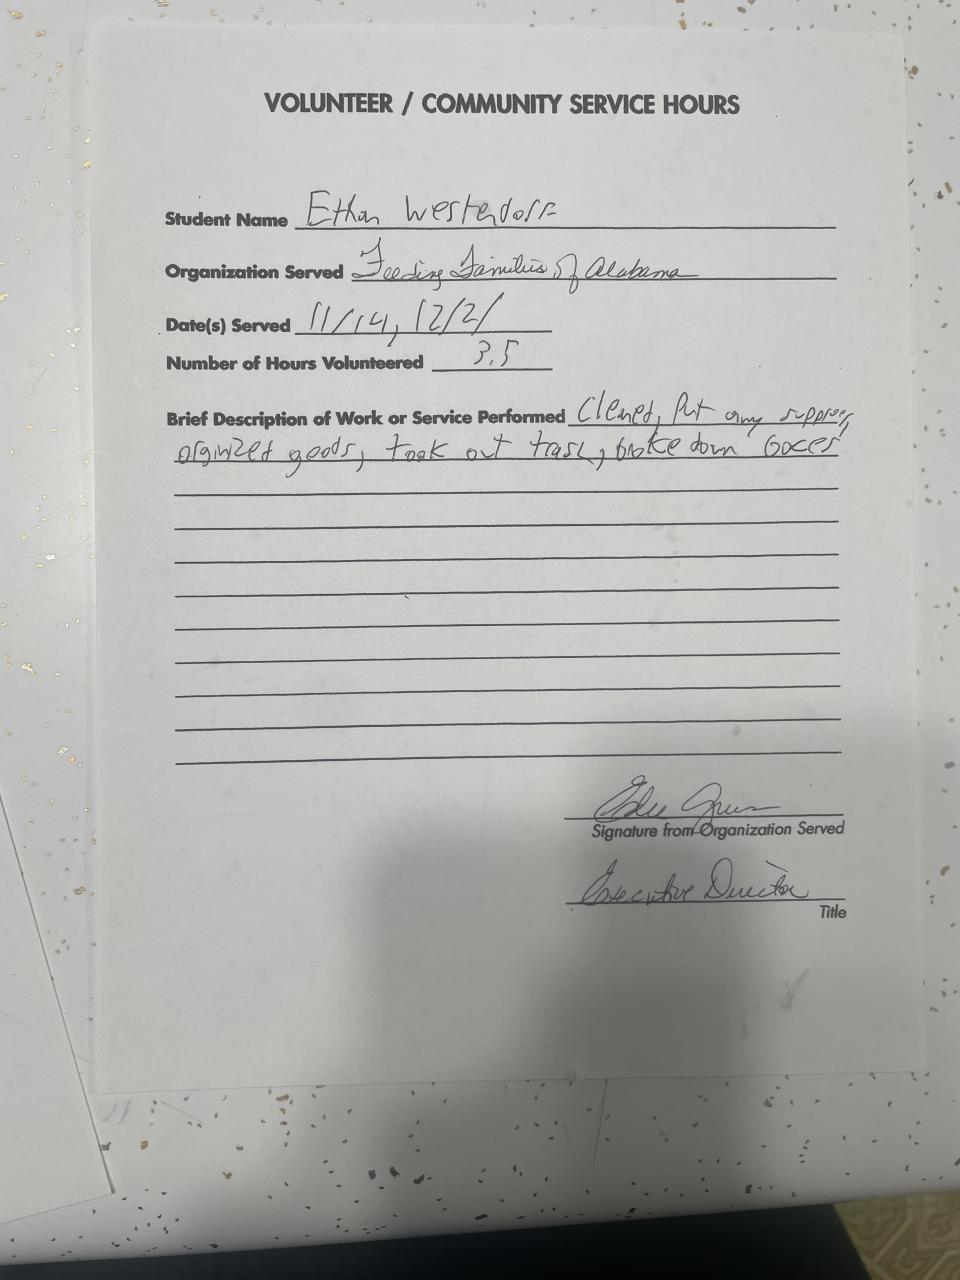 VOLUNTEER / COMMUNITY SERVICE HOURS
Student Name Ethan Westendorf
Organization Served Feeding Families of Alabama
Date(s) Served 11/14, 12/2/
Number of Hours Volunteered 3.5
Brief Description of Work or Service Performed Clened, Put
orginized goods, took out trash, broke down
Signature from Organization Served
Executive Director
Title